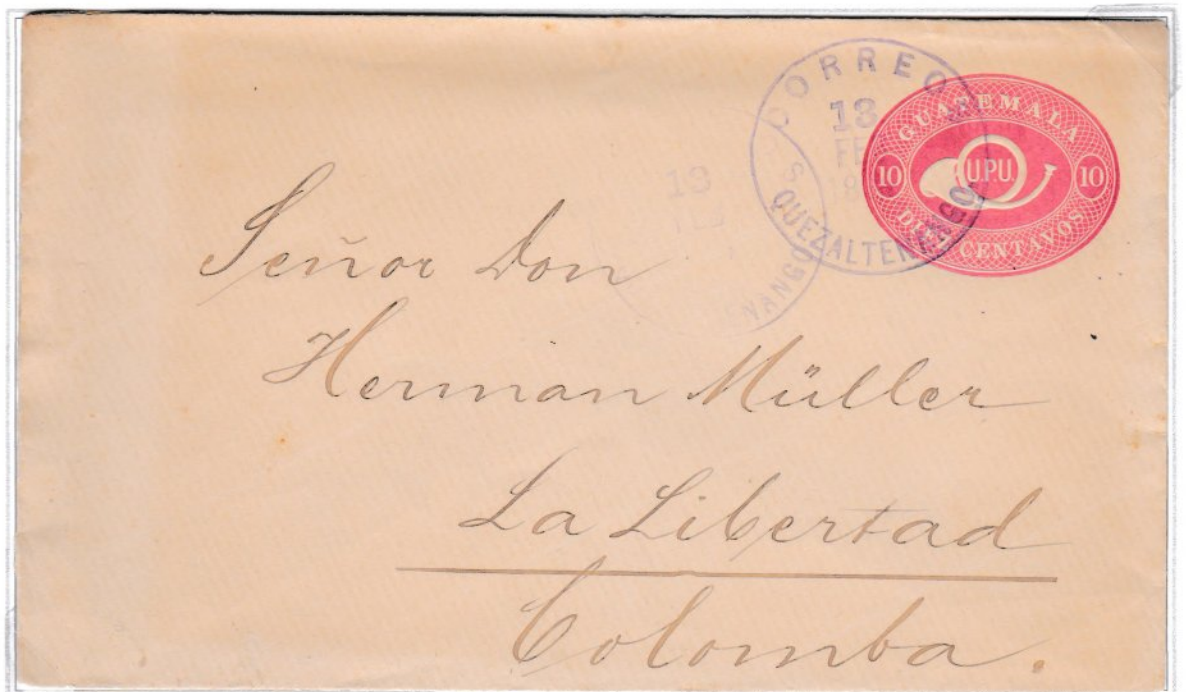 CORREOS
18
FE
QUEZALTENANGO
GUATEMALA
10 U.P.U. 10
DIEZ CENTAVOS
18
NANGO
Señor Don
Herman Müller
La Libertad
Colomba.